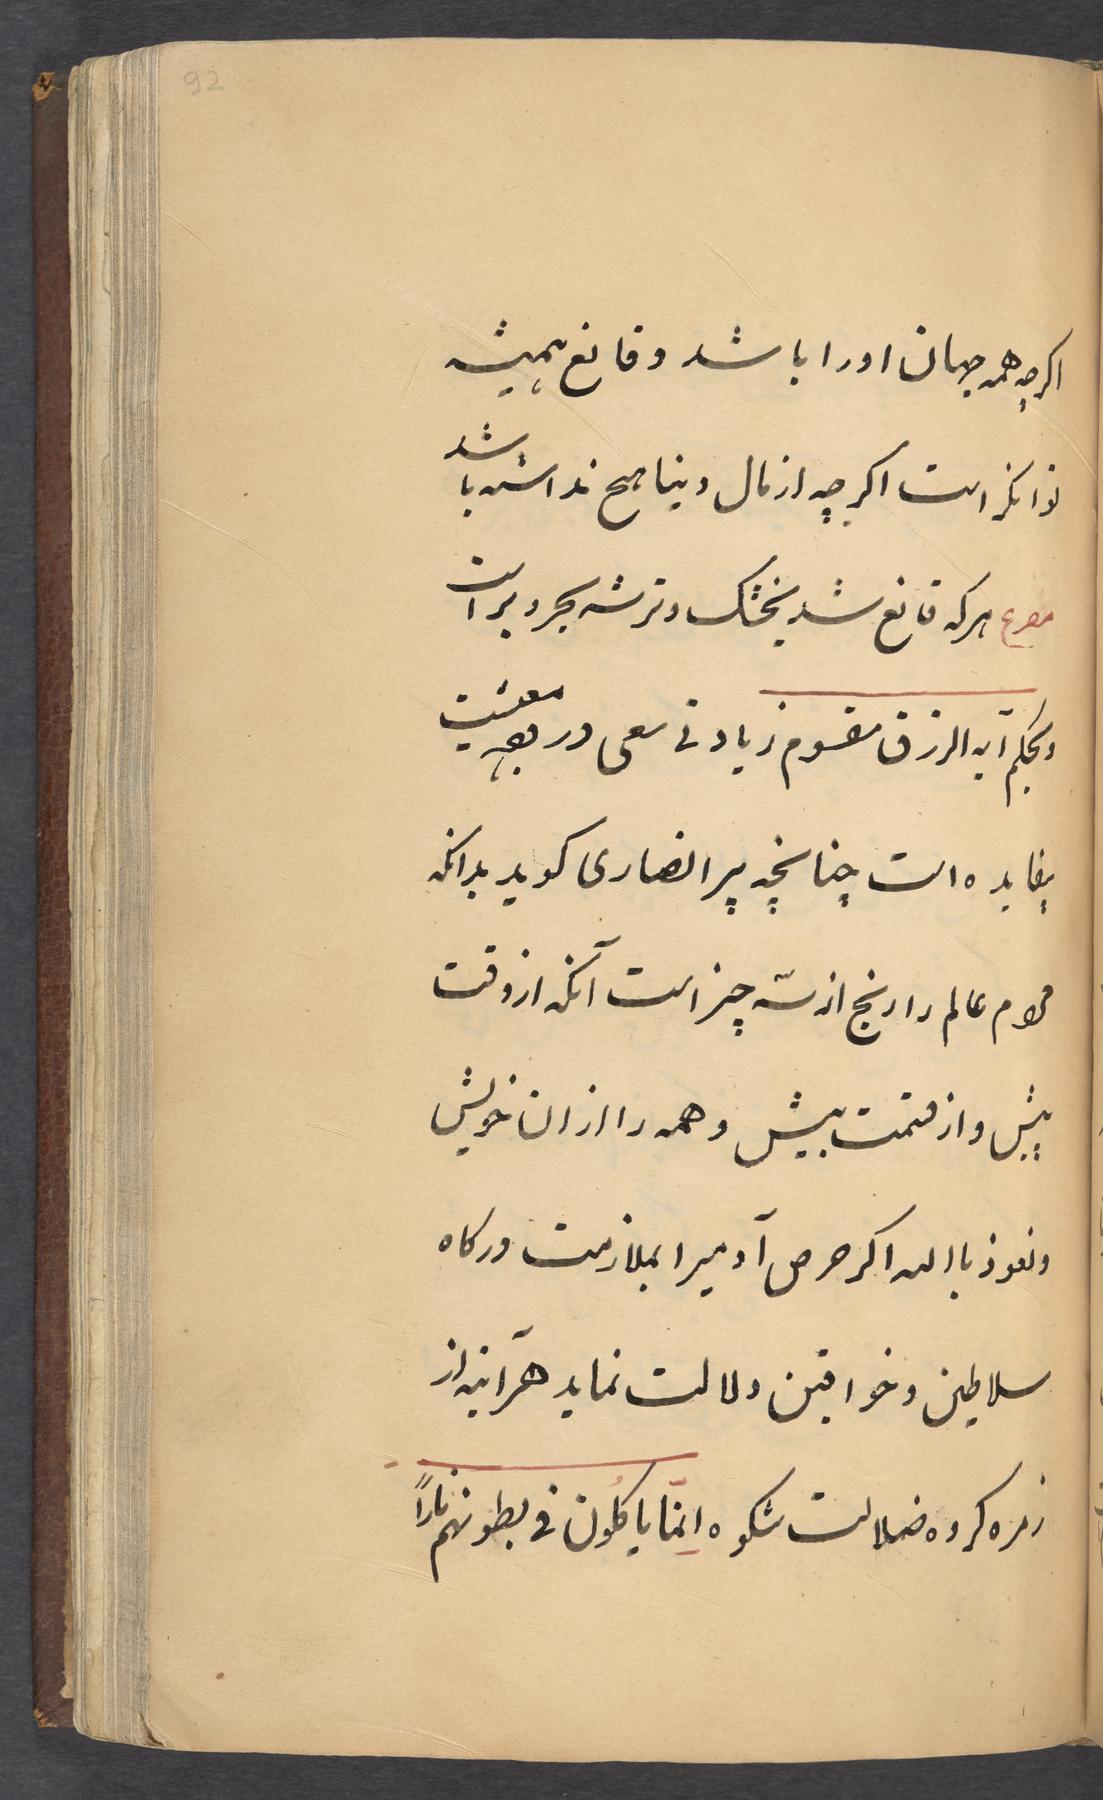 92
اکرچه همه جهان او را باشد و قانع همیشه
توانکر است اکرچه از مال دینا هیچ نداشته باشد
مصرع هرکه قانع شد بخشک و تر شه بحر و بر است
و بحکم آیه الرزق مقسوم زیادتی سعی در وجه معیشت
بیفایده است چنانچه پیر انصاری کوید بدانکه
مردم عالم را رنج از سّه چیز است آنکه از وقت
پیش و از قسمت بیش و همه را از ان خویش
و نعوذ باالله اکر حرص آدمیرا بملازمت درکاه
سلاطین و خواقین دلالت نماید هرآینه از
زمره کروه ضلالت شکوه انّما یاکلُون فی بطونهم ناراً